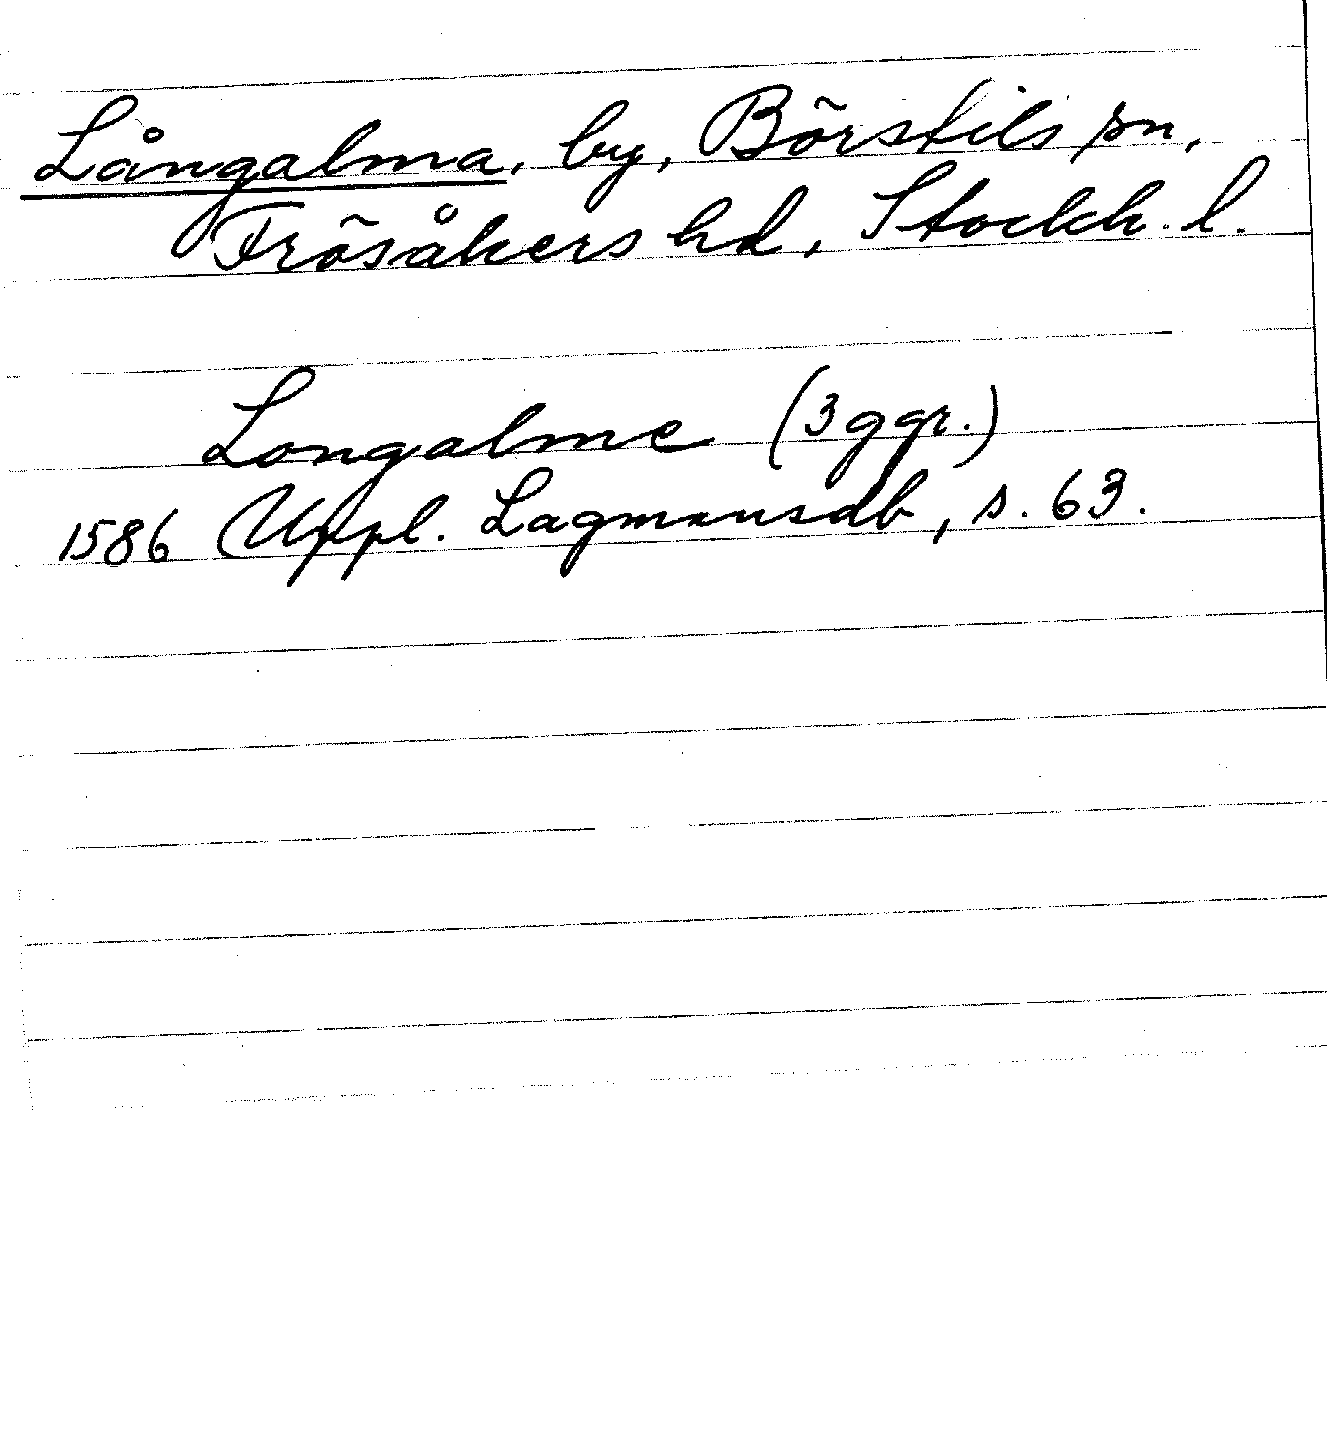 Långalma, by, Börstils sn,
Frösåkers hd, Stockh. l.
Longalme (3 ggr.)
1586 Uppl. Lagmansdb, s. 63.